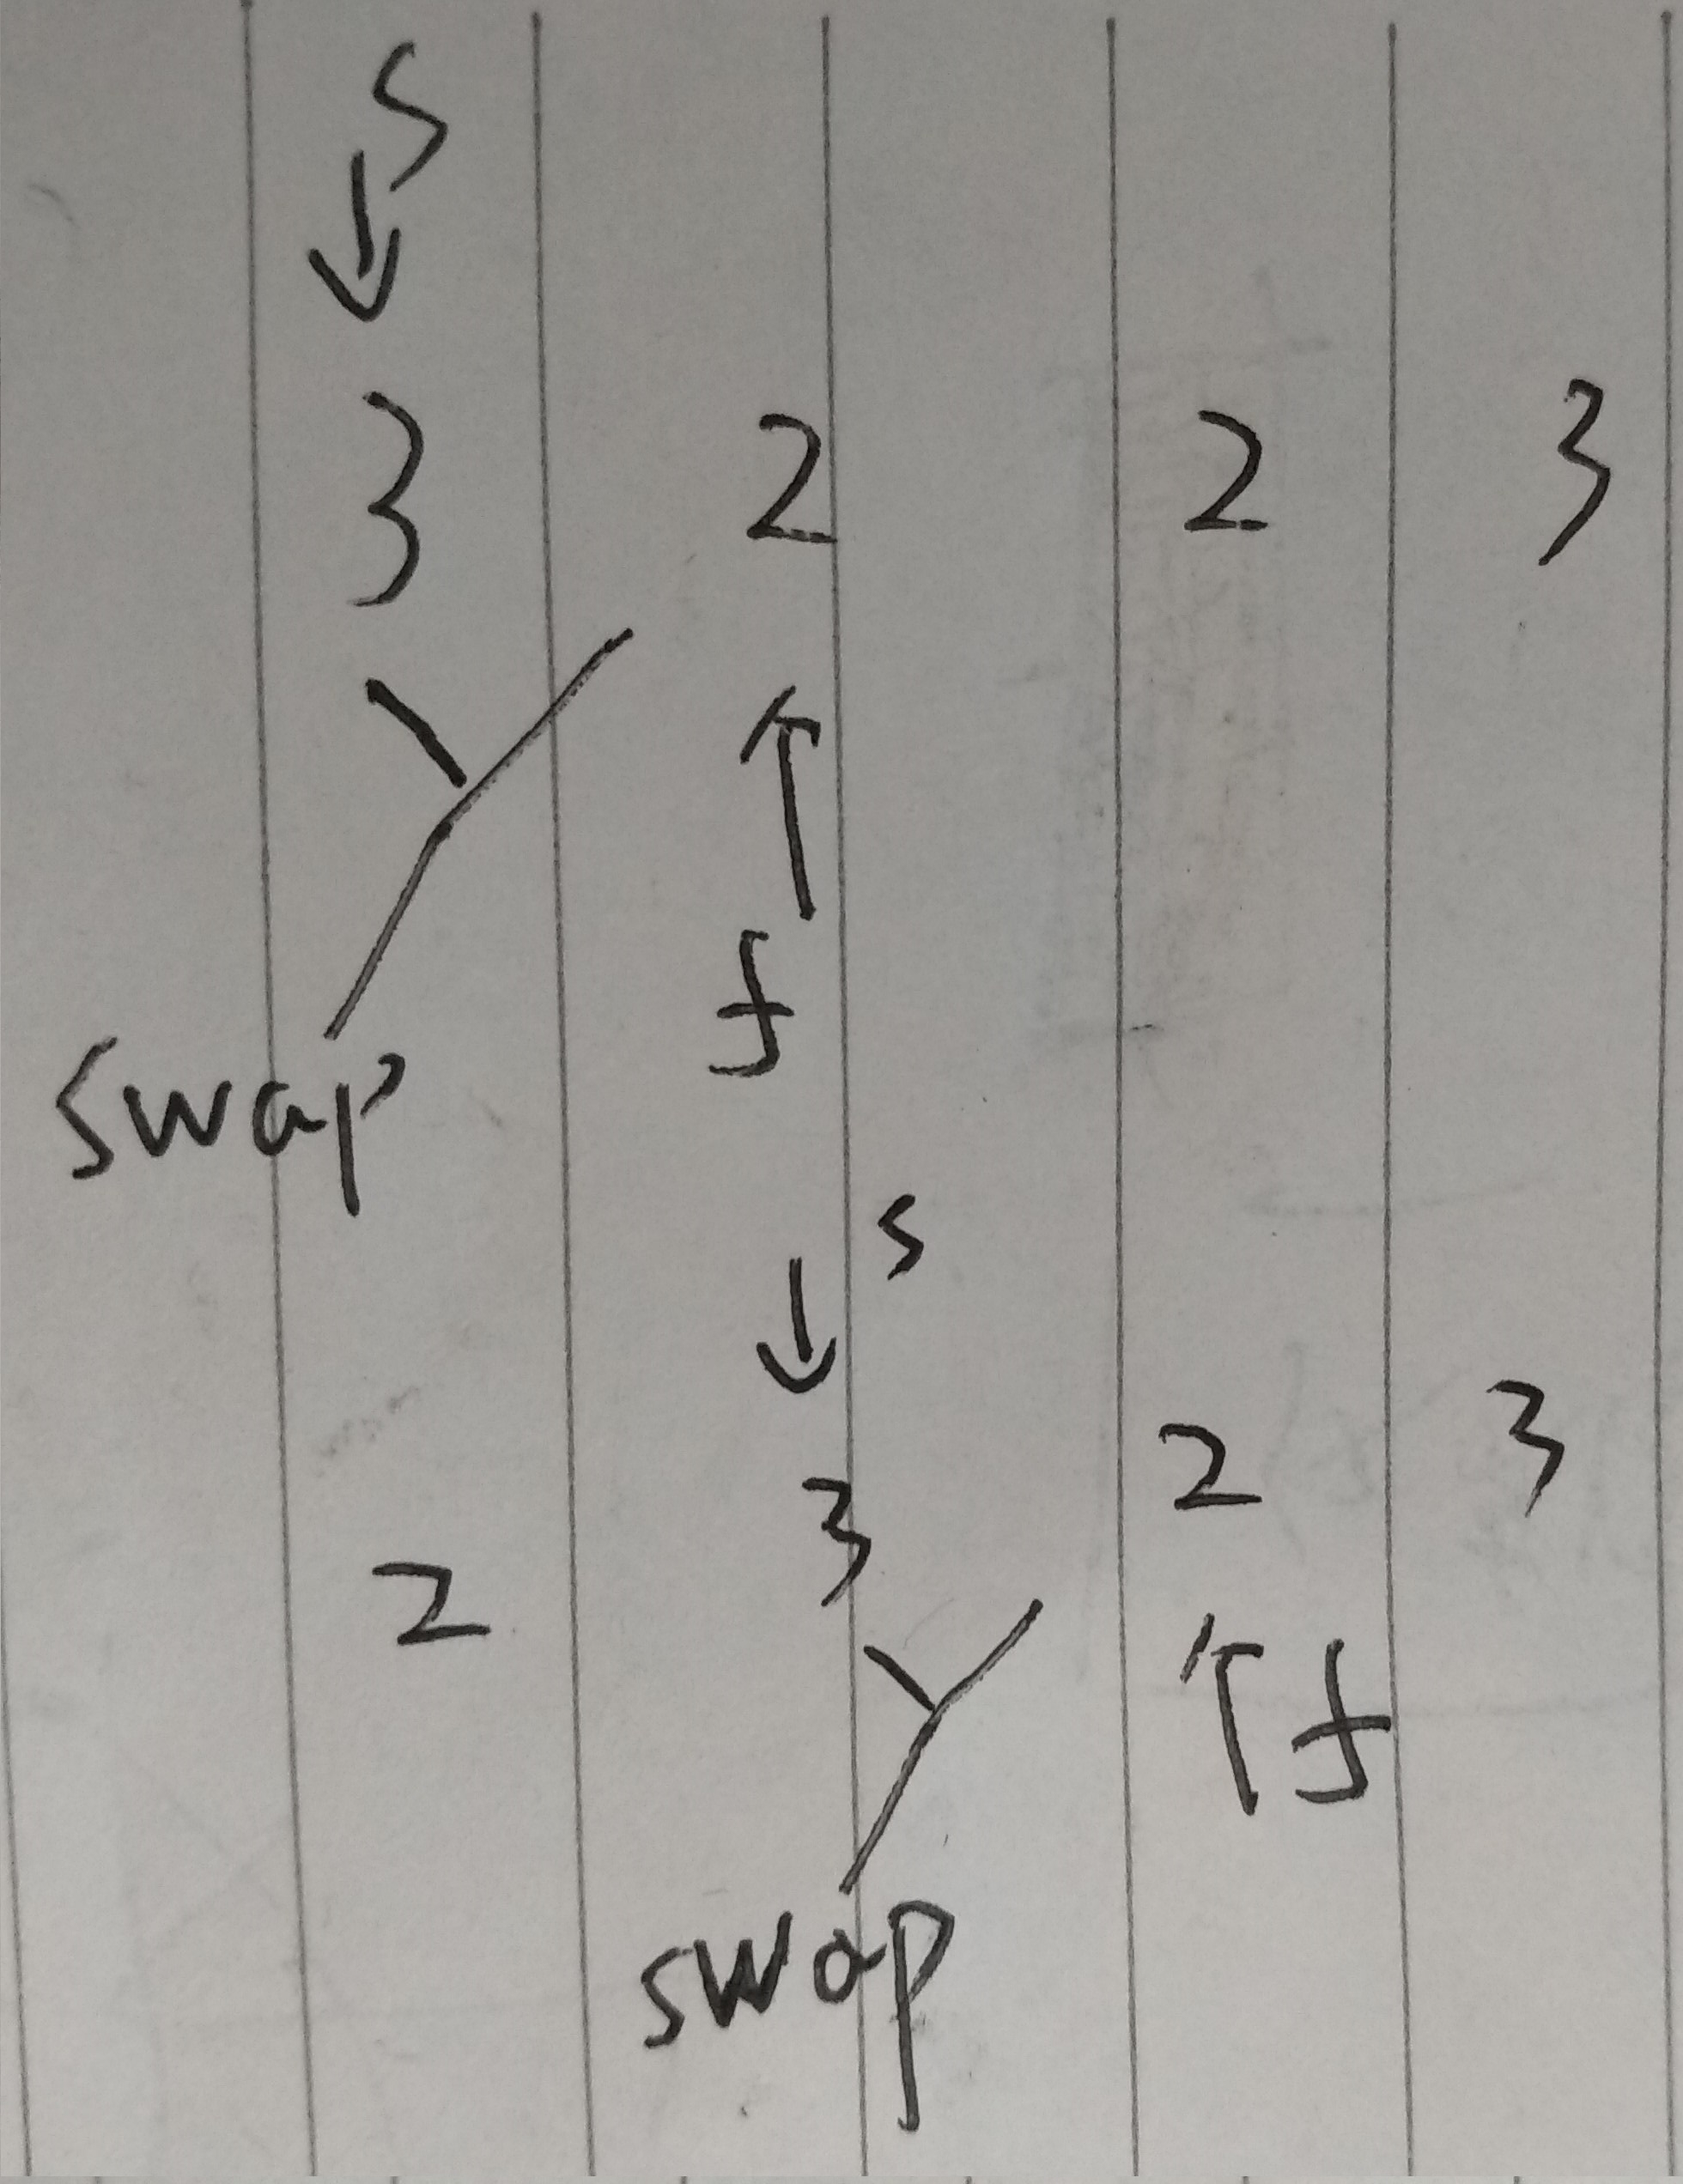 s
↓
3 2 2 3
↑
f
swap
s
↓
2 3 2 3
↑ f
swap